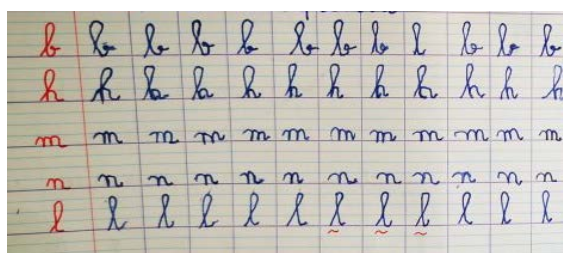 b b b b b b b b l b b b
h h h h h h h h h h h h
m m m m m m m m m m m m
n n n n n n n n n n n n
l l l l l l l l l l l l